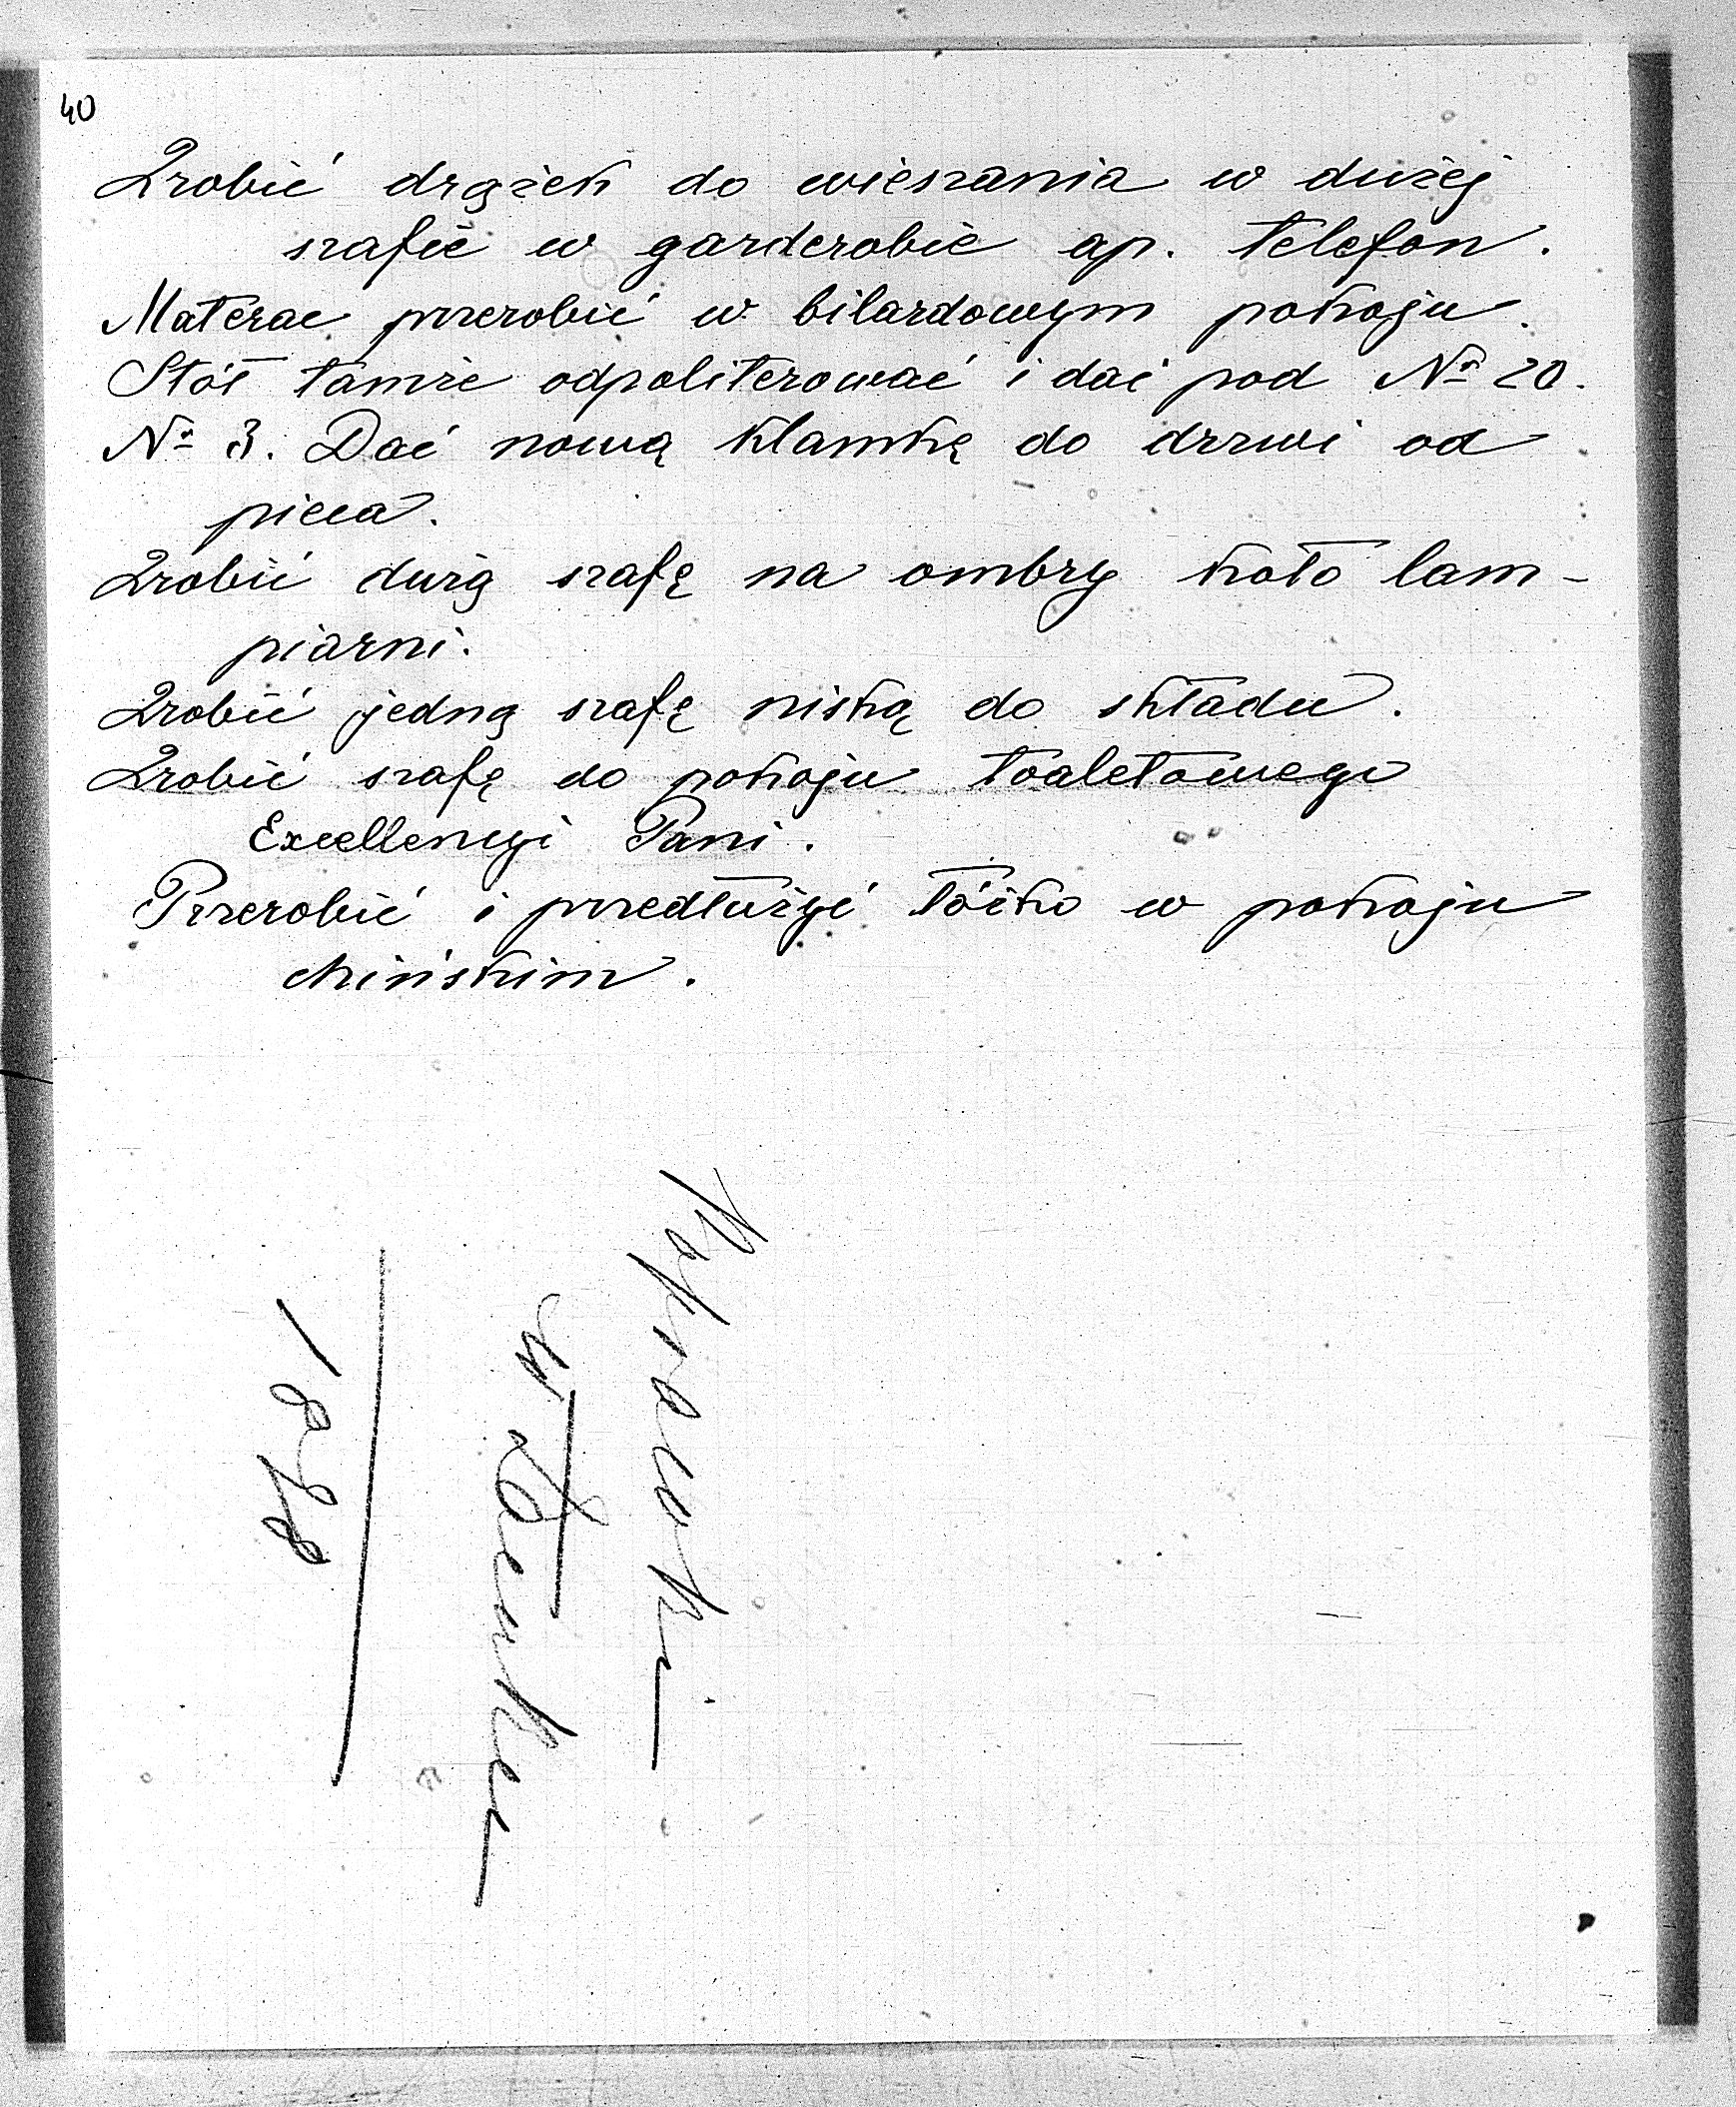 40
Zrobić drążek do wieszania w dużej
szafie w garderobie ap. telefon.
Materac przerobić w bilardowym pokoju.
Stół tamże odpoliterować i dać pod № 20.
№ 3. Dać nową klamkę do drzwi od
pieca.
Zrobić dużą szafę na ombry koło lam-
piarni.
Zrobić jedną szafę niską do składu.
Zrobić szafę do pokoju toaletowego
Excellencyi Pani.
Przerobić i przedłużyć łóżko w pokoju
chińskim.
w Łańcucie
1898